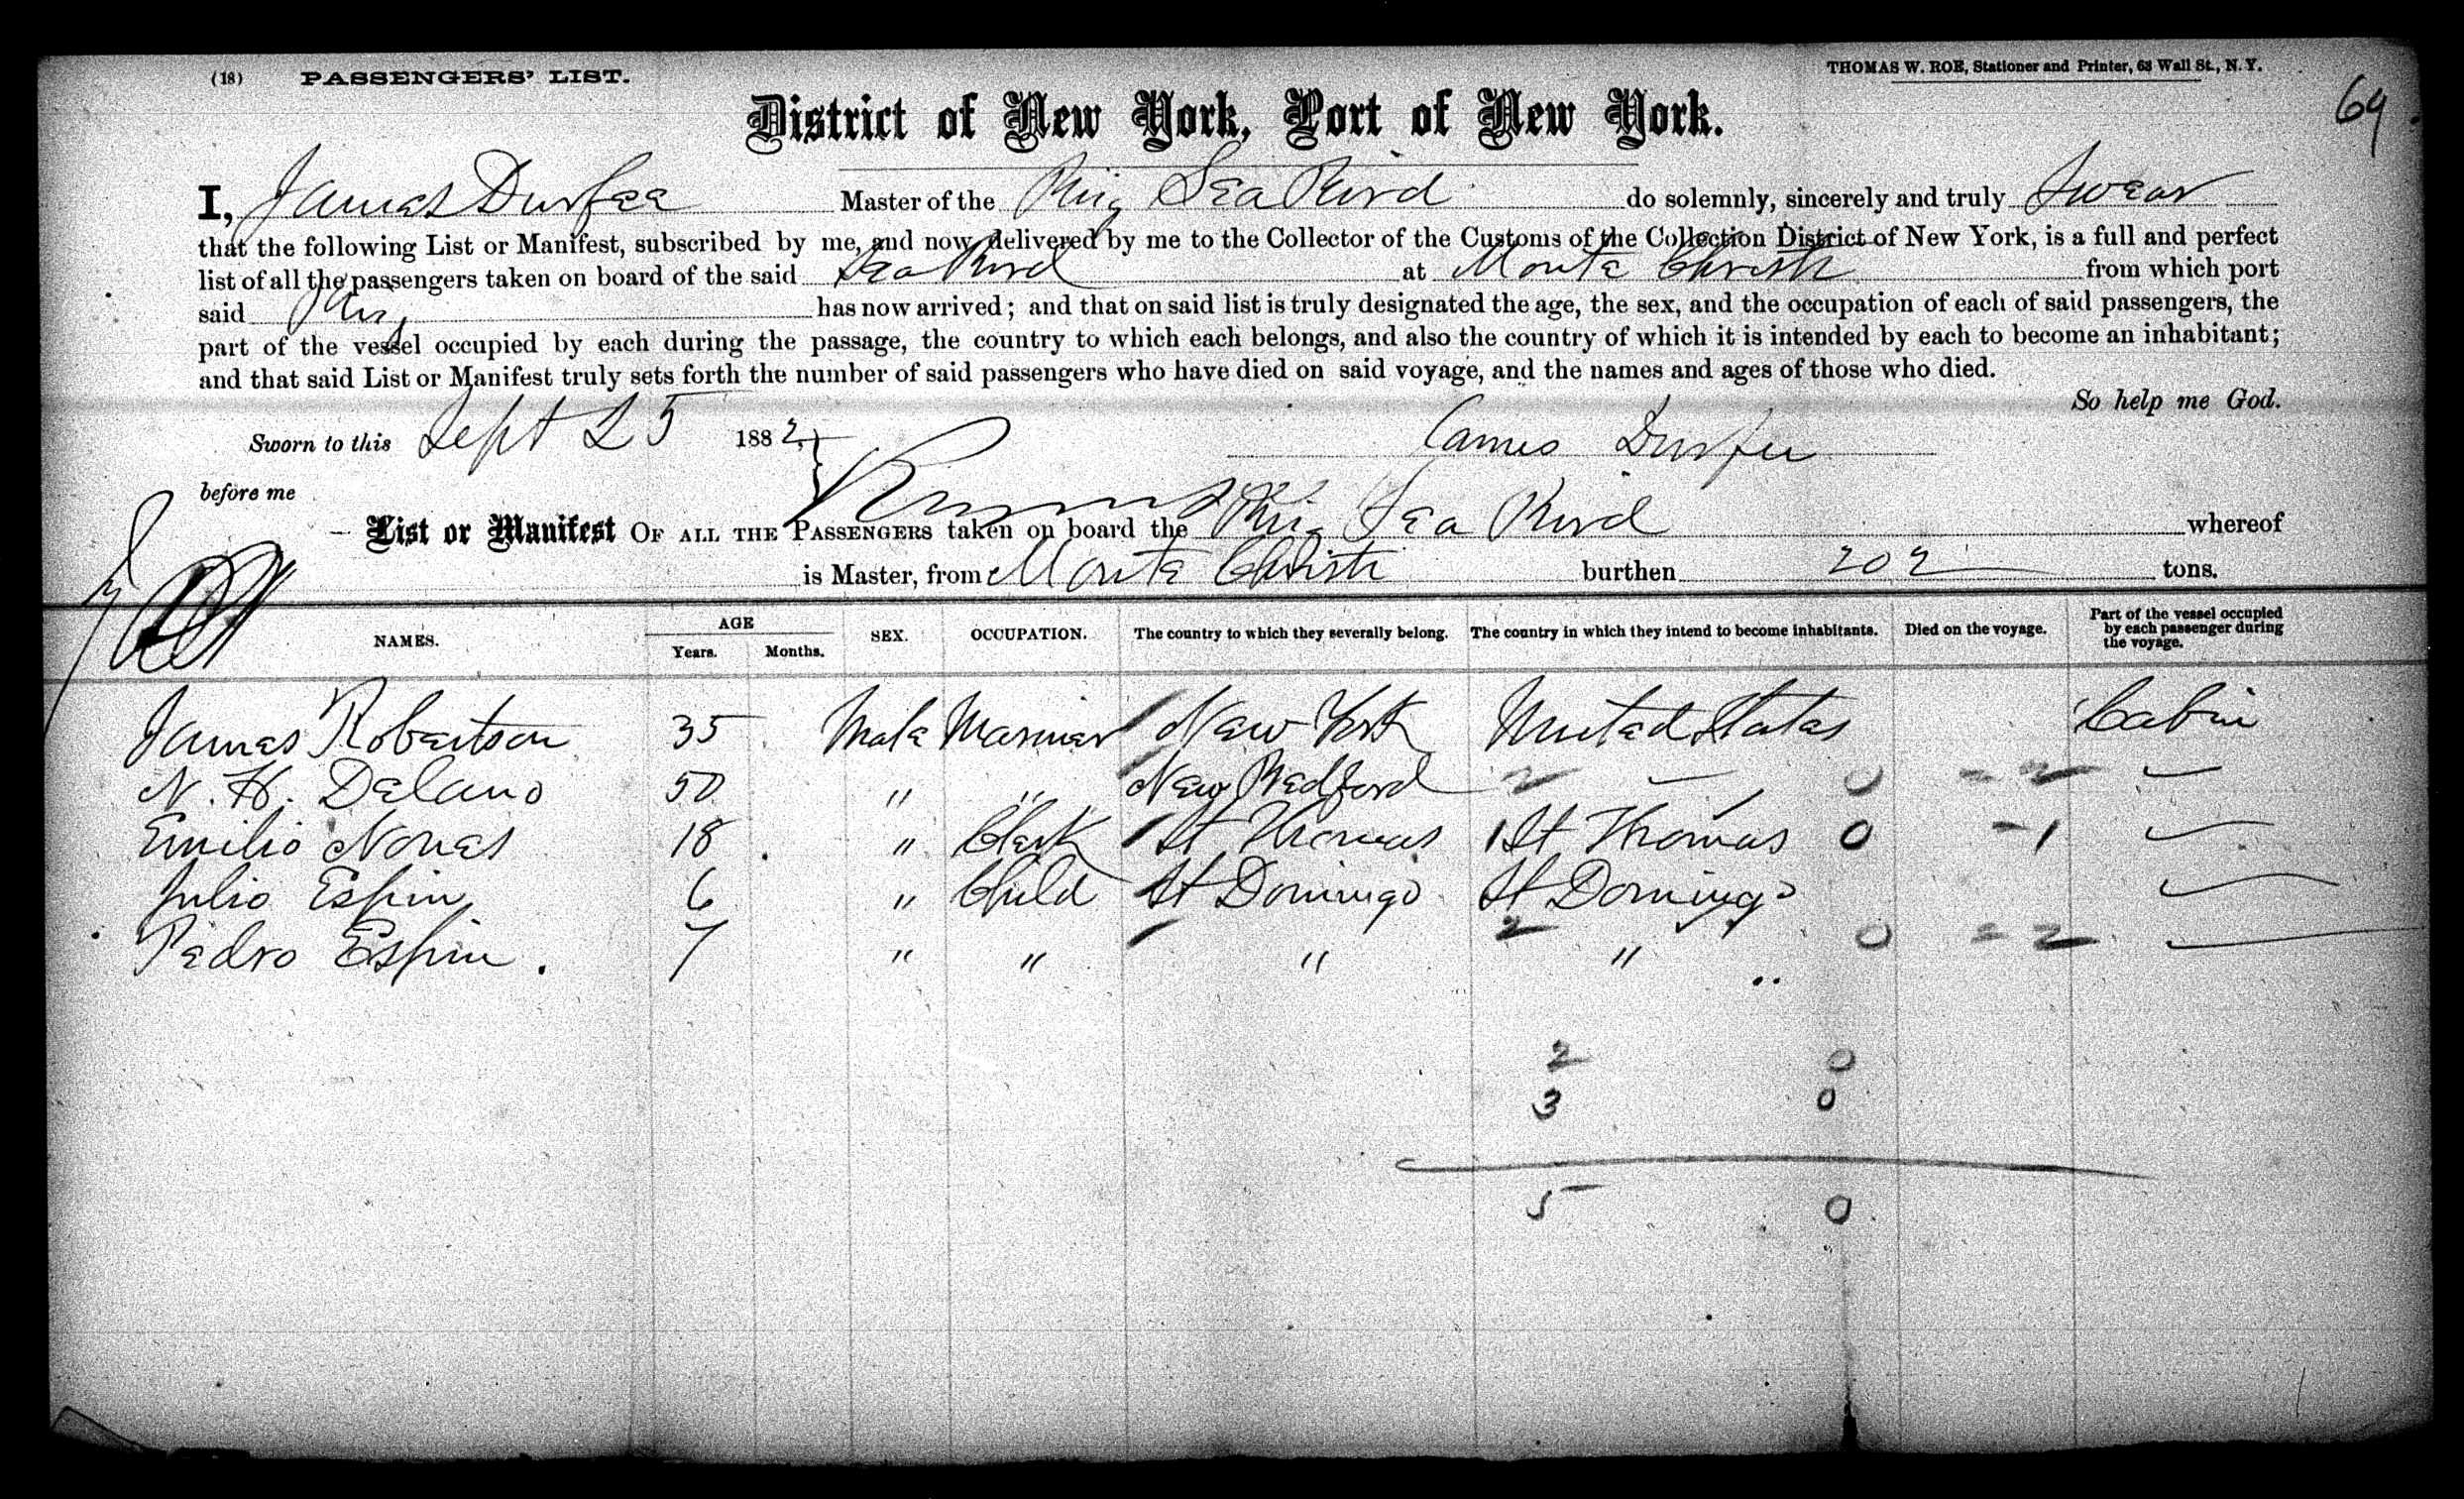 (18) PASSENGERS' LIST. THOMAS W. ROE, Stationer and Printer, 63 Wall St., N. Y.
69
District of New York, Port of New York.
I, James Durfee Master of the Brig Sea Bird do solemnly, sincerely and truly Swear
that the following List or Manifest, subscribed by me, and now delivered by me to the Collector of the Customs of the Collection District of New York, is a full and perfect
list of all the passengers taken on board of the said Sea Bird at Monte Christi from which port
said Brig has now arrived; and that on said list is truly designated the age, the sex, and the occupation of each of said passengers, the
part of the vessel occupied by each during the passage, the country to which each belongs, and also the country of which it is intended by each to become an inhabitant;
and that said List or Manifest truly sets forth the number of said passengers who have died on said voyage, and the names and ages of those who died.
So help me God.
Sworn to this Sept 25 1882, James Durfee
before me
List or Manifest OF ALL THE PASSENGERS taken on board the Brig Sea Bird whereof
is Master, from Monte Christi burthen 202 tons.
NAMES. AGE Years. Months. SEX. OCCUPATION. The country to which they severally belong. The country in which they intend to become inhabitants. Died on the voyage. Part of the vessel occupied by each passenger during the voyage.
James Robertson 35 Male Mariner New York United States Cabin
N. H. Delano 50 " " New Bedford 2 — 0 = 2 —
Emilio Nones 18 " Clerk St Thomas 1 St Thomas 0 - 1 —
Julio Espin 6 " Child St Domingo St Domingo —
Pedro Espin. 7 " " " 2 " 0 = 2 —
2 0
3 0
5 0